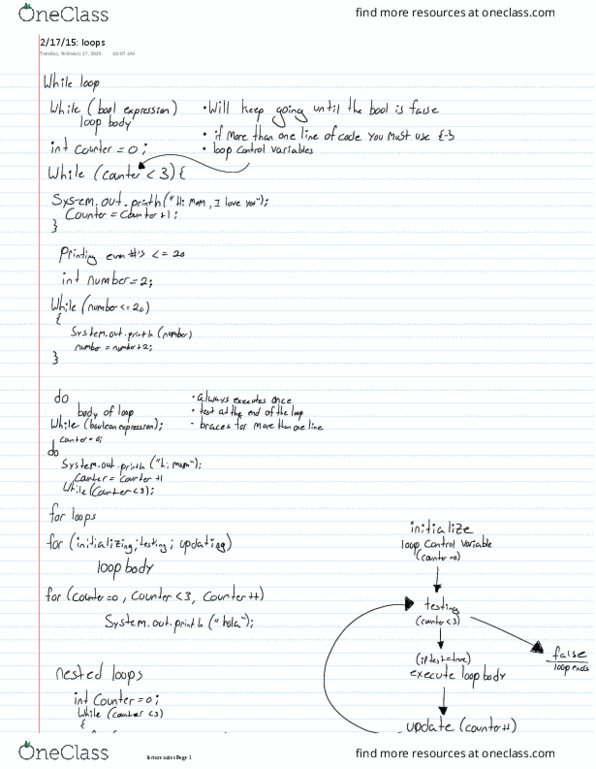 OneClass
find more resources at oneclass.com
2/17/15: loops
Tuesday, February 17, 2015 10:07 AM
While loop
While (bool expression) • Will keep going until the bool is false
loop body
• if more than one line of code you must use {-}
int counter = 0; • loop control variables
While (counter < 3) {
System.out.println("Hi mom, I love you");
Counter = Counter +1;
}
Printing even #'s <= 20
int number = 2;
While (number <= 20)
{
System.out.println (number)
number = number+2;
}
do • always executes once
body of loop • test at the end of the loop
While (boolean expression); • braces for more than one line
counter = 0;
do
System.out.println ("hi mom");
Counter = counter +1
While (Counter <3);
for loops
for (initializing; testing; updating)
loop body
for (Counter=0, Counter <3, Counter ++)
System.out.println ("hola");
initialize
loop Control Variable
(counter =0)
testing
(counter <3)
false
loop ends
(if test = true)
execute loop body
update (counter++)
nested loops
int Counter = 0;
While (counter <3)
{
OneClass
lecture notes Page 1
find more resources at oneclass.com